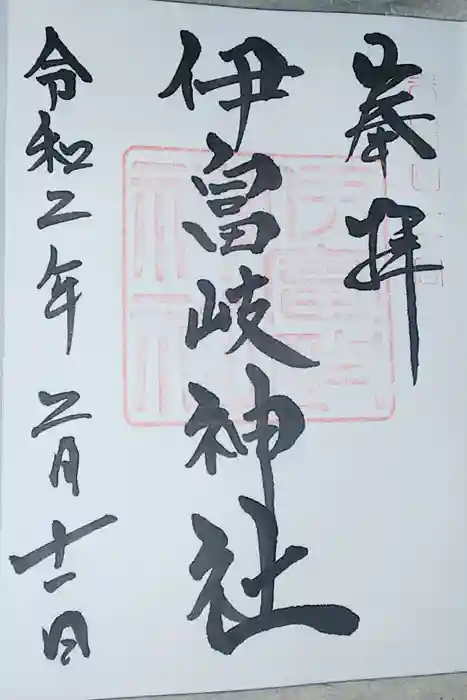 奉拝
伊冨岐神社
令和二年二月十一日